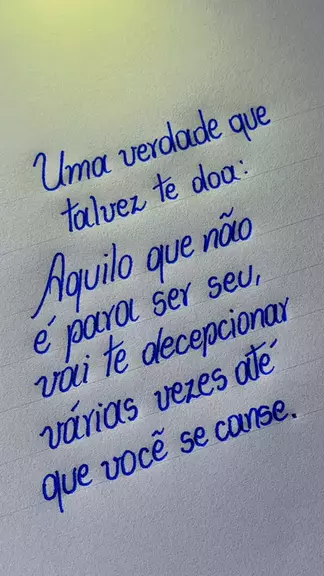 Uma verdade que
talvez te doa:
Aquilo que não
é para ser seu,
vai te decepcionar
várias vezes até
que você se canse.